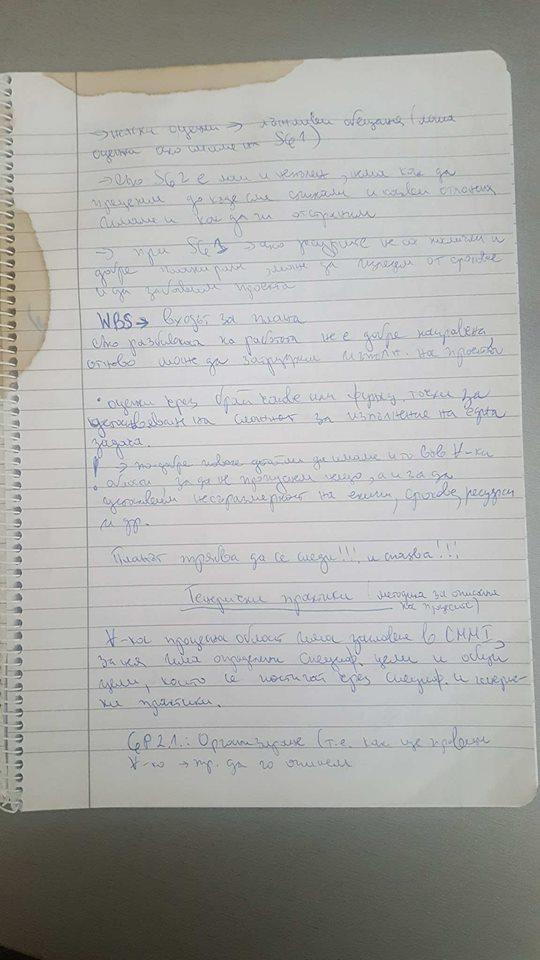 → ниски оценки → лъжливи обещания (лоша
оценка ако имаме на SG1)
→ Ако SG2 е лош и непълен, няма как да
преценим до къде сме стигнали и какви отклонения
имаме и как да ги отстраним
→ при SG3 → ако ресурсите не са налични и
добре планирани, може да излезем от срокове
и да забавим проекта
WBS → входът за плана
Ако разбивката на работата не е добре направена,
отново може да затрудним изпълн. на проекта
• оценки чрез брой часове или функц. точки за
установяване на сложност за изпълнение на една
задача.
! → по-добре повече детайли да имаме и то във ∀-ки
области за да не пропуснем нещо, а и за да
установим несъразмерност на екипи, срокове, ресурси
и др.
Планът трябва да се следи!!! и спазва!!!
Генерични практики (методика за описание
на процесите)
∀-ка процесна област има заложени в CMMI,
за нея има определени специф. цели и общи
цели, които се постигат чрез специф. и генерич-
ни практики.
GP2.1.: Организиране (т.е. как ще правим
∀-ко → тр. да го опишем